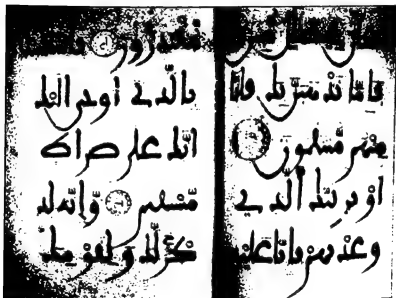 ضلل مبين
فاما نذهبن بك فانا
منهم منتقمون
او نرينك الذي
وعدنهم فانا عليهم
مقتدرون
بالذي اوحي اليك
انك على صراط
مستقيم وانه لـ
ذكر لك ولقومك